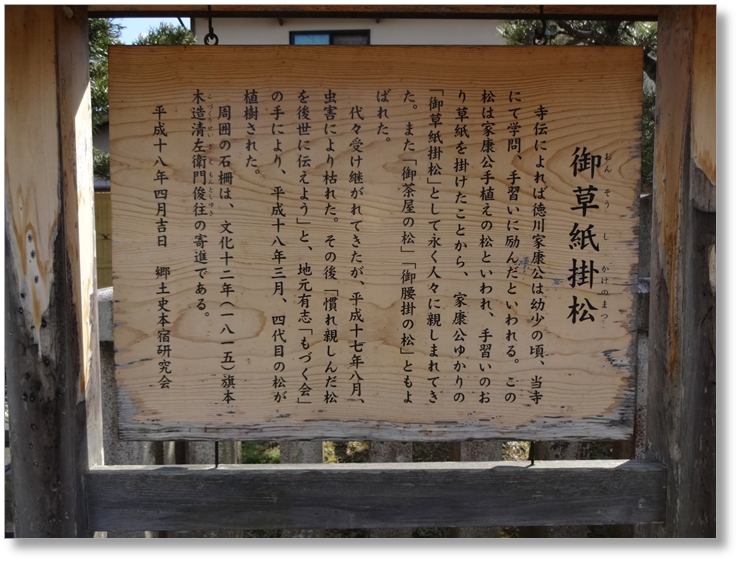 御草紙掛松
おんそうしかけのまつ
寺伝によれば徳川家康公は幼少の頃、当寺
にて学問、手習いに励んだといわれる。この
松は家康公手植えの松といわれ、手習いのお
り草紙を掛けたことから、家康公ゆかりの
「御草紙掛松」として永く人々に親しまれてき
た。また「御茶屋の松」「御腰掛の松」ともよ
ばれた。
代々受け継がれてきたが、平成十七年八月、
虫害により枯れた。その後「慣れ親しんだ松
を後世に伝えよう」と、地元有志「もづく会」
の手により、平成十八年三月、四代目の松が
植樹された。
周囲の石柵は、文化十二年(一八一五)旗本
木造清左衛門俊往の寄進である。
こづくりせいざえもんとしゆき
平成十八年四月吉日　郷土史本宿研究会